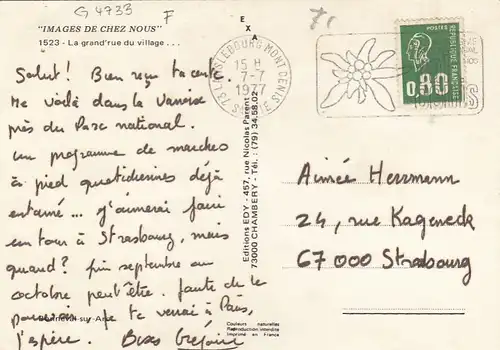 G 4733
F
"IMAGES DE CHEZ NOUS"
1523 - La grand'rue du village . . .
Salut ! Bien reçu ta carte.
Me voilà dans la Vanoise
près du Parc national.
un programme de marches
à pied quotidiennes déjà
entamé ... j'aimerai faire
un tour à Strasbourg, mais
quand ? fin septembre ou
octobre peut-être. faute de le
pouvoir je te verrai à Paris,
j'espère. Bises Grégoire
sur-Arc
EXA
Editions EDY - 457, rue Nicolas Parent
73000 CHAMBERY - Tél. : (79) 34.58.02
Couleurs naturelles
Reproduction interdite
Imprimé en France
73 LANSLEBOURG MONT CENIS
15 H
7-7
1977
SAVOIE
POSTES
REPUBLIQUE FRANÇAISE
0,80
Aimée Herrmann
24, rue Kageneck
67000 Strasbourg